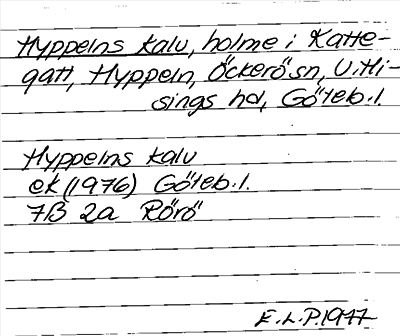 Hyppelns kalv, holme i Katte-
gatt, Hyppeln, Öckerö sn, V. Hi-
sings hd, Göteb. l.
Hyppelns kalv
ek (1976) Göteb. l.
7B 2a Rörö
E. L. P. 1977